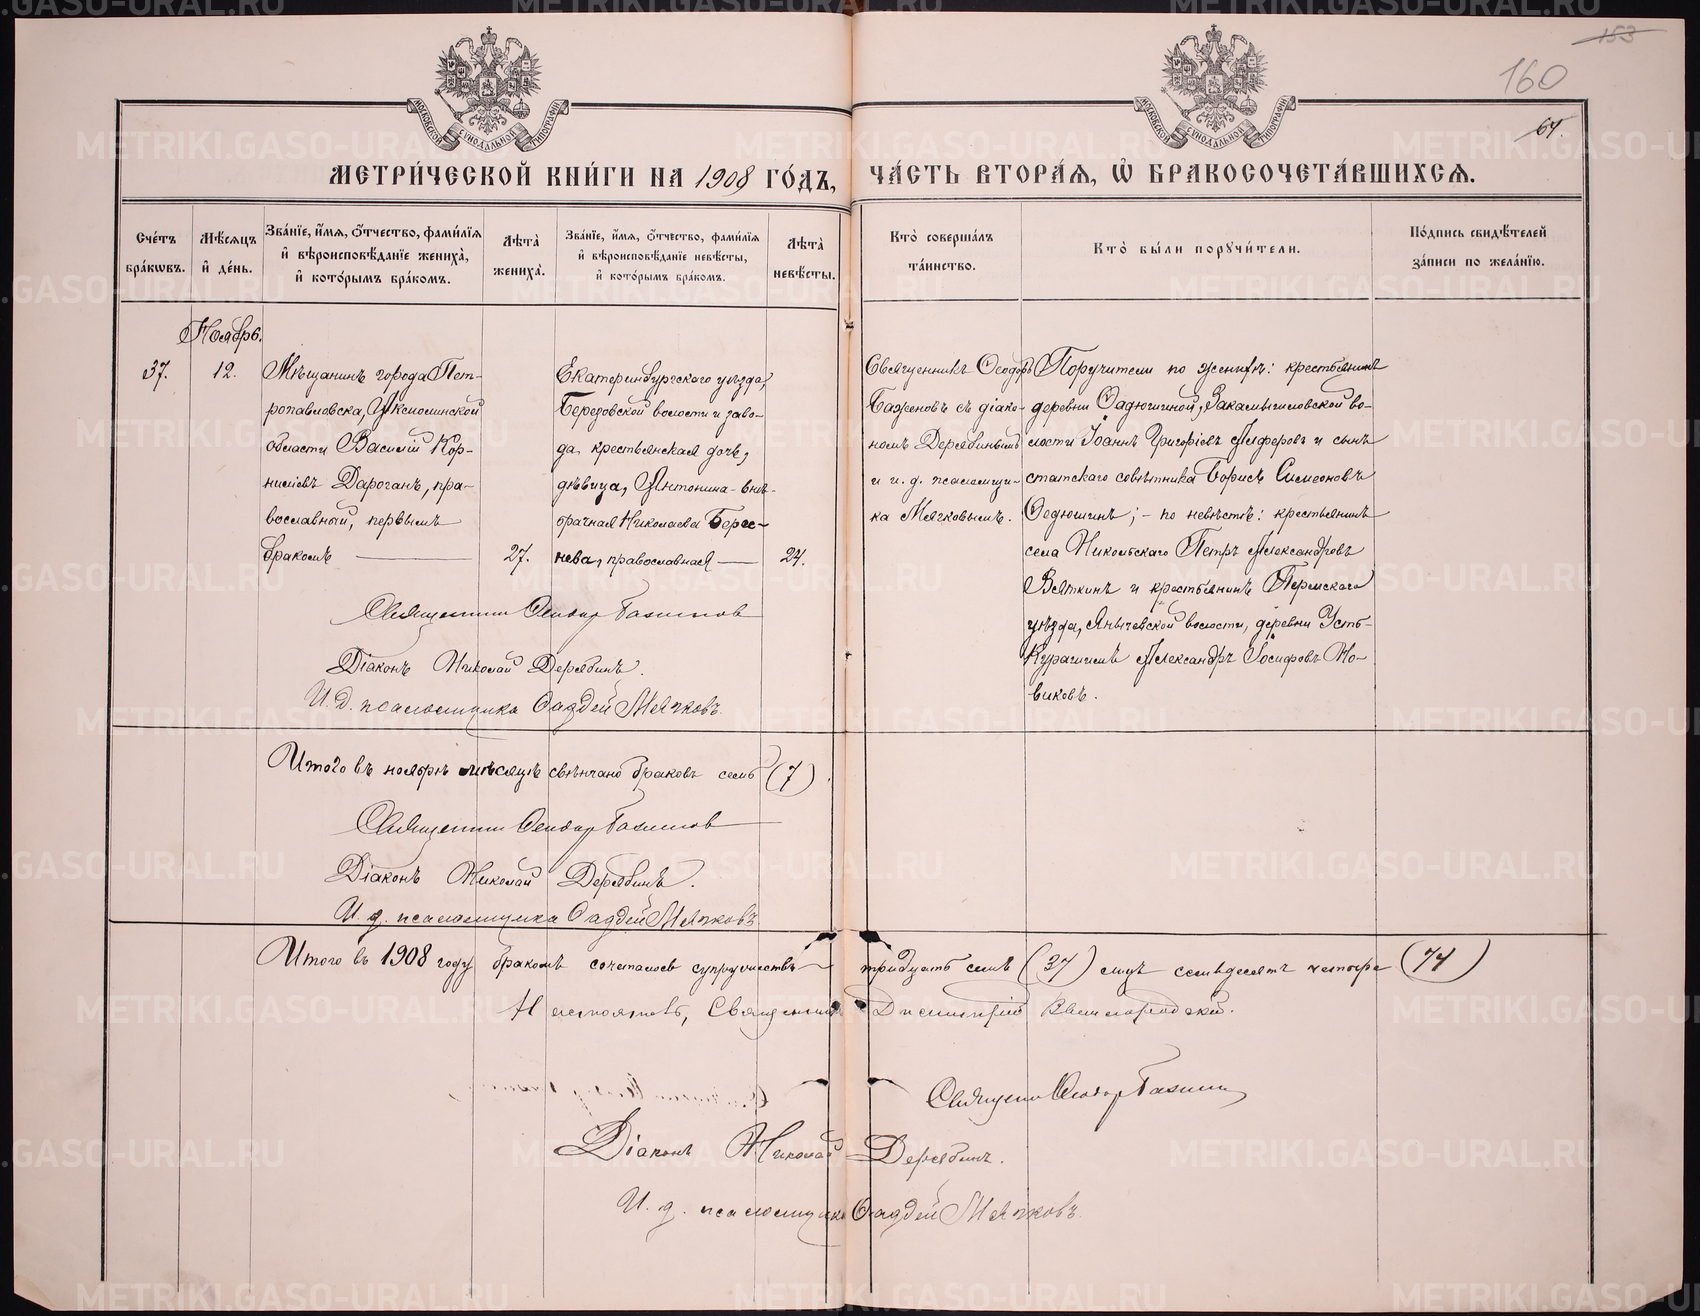 153
160
64.
МОСКОВСКОЙ СѴНОДАЛЬНОЙ ТИПОГРАФІИ
МОСКОВСКОЙ СѴНОДАЛЬНОЙ ТИПОГРАФІИ
МЕТРИ́ЧЕСКОЙ КНИ́ГИ НА 1908 ГО́ДЪ, ЧА́СТЬ ВТОРА́Я, Ѽ БРАКОСОЧЕТА́ВШИХСЯ.
Сче́тъ бра́кѡвъ.
Мѣ́сяцъ и҆ де́нь.
Зва́нїе, и҆́мя, ѻ҆́тчество, фами́лїя и҆ вѣроисповѣ́данїе жениха̀, и҆ кото́рымъ бра́комъ.
Лѣта̀ жениха̀.
Зва́нїе, и҆́мя, ѻ҆́тчество, фами́лїя и҆ вѣроисповѣ́данїе невѣ́сты, и҆ кото́рымъ бра́комъ.
Лѣта̀ невѣ́сты.
Кто̀ соверша́лъ та́инство.
Кто̀ бы́ли порꙋчи́тели.
По́дпись свидѣ́телей за́писи по жела́нїю.
Ноябрь.
37.
12.
Мѣщанинъ города Пет-
ропавловска, Акмолинской
области Василій Кор-
ниліевъ Дароганъ, пра-
вославный, первымъ
бракомъ
27.
Екатеринбургскаго уѣзда,
Березовской волости и заво-
да, крестьянская дочь,
дѣвица, Антонина-внѣ-
брачная Николаева Берес-
нева, православная
24.
Священникъ Ѳеодоръ
Баженовъ съ діако-
номъ Дерябинымъ
и и. д. псаломщи-
ка Мячковымъ.
Поручители по женихѣ: крестьянинъ
деревни Ѳадюшиной, Закамышловской во-
лости Іоаннъ Григоріевъ Алферовъ и сынъ
статскаго совѣтника Борисъ Симеоновъ
Ѳедюшинъ; - по невѣстѣ: крестьянинъ
села Никольскаго Петръ Александровъ
Вяткинъ и крестьянинъ Пермскаго
уѣзда, Янычевской волости, деревни Усть-
Курашимъ Александръ Іосифовъ Но-
виковъ.
Священникъ Ѳеодоръ Баженовъ
Діаконъ Николай Дерябинъ.
И. д. псаломщика Ѳаддей Мячковъ.
Итого въ ноябрѣ мѣсяцѣ свѣнчано браковъ семь (7).
Священникъ Ѳеодоръ Баженовъ
Діаконъ Николай Дерябинъ.
И. д. псаломщика Ѳаддей Мячковъ
Итого въ 1908 году бракомъ сочеталось супружествъ тридцать семь (37) лицъ семьдесятъ четыре (74)
Настоятель, Священникъ Димитрій
Священникъ Ѳеодоръ Баженовъ
Діаконъ Николай Дерябинъ.
И. д. псаломщика Ѳаддей Мячковъ.
METRIKI.GASO-URAL.RU